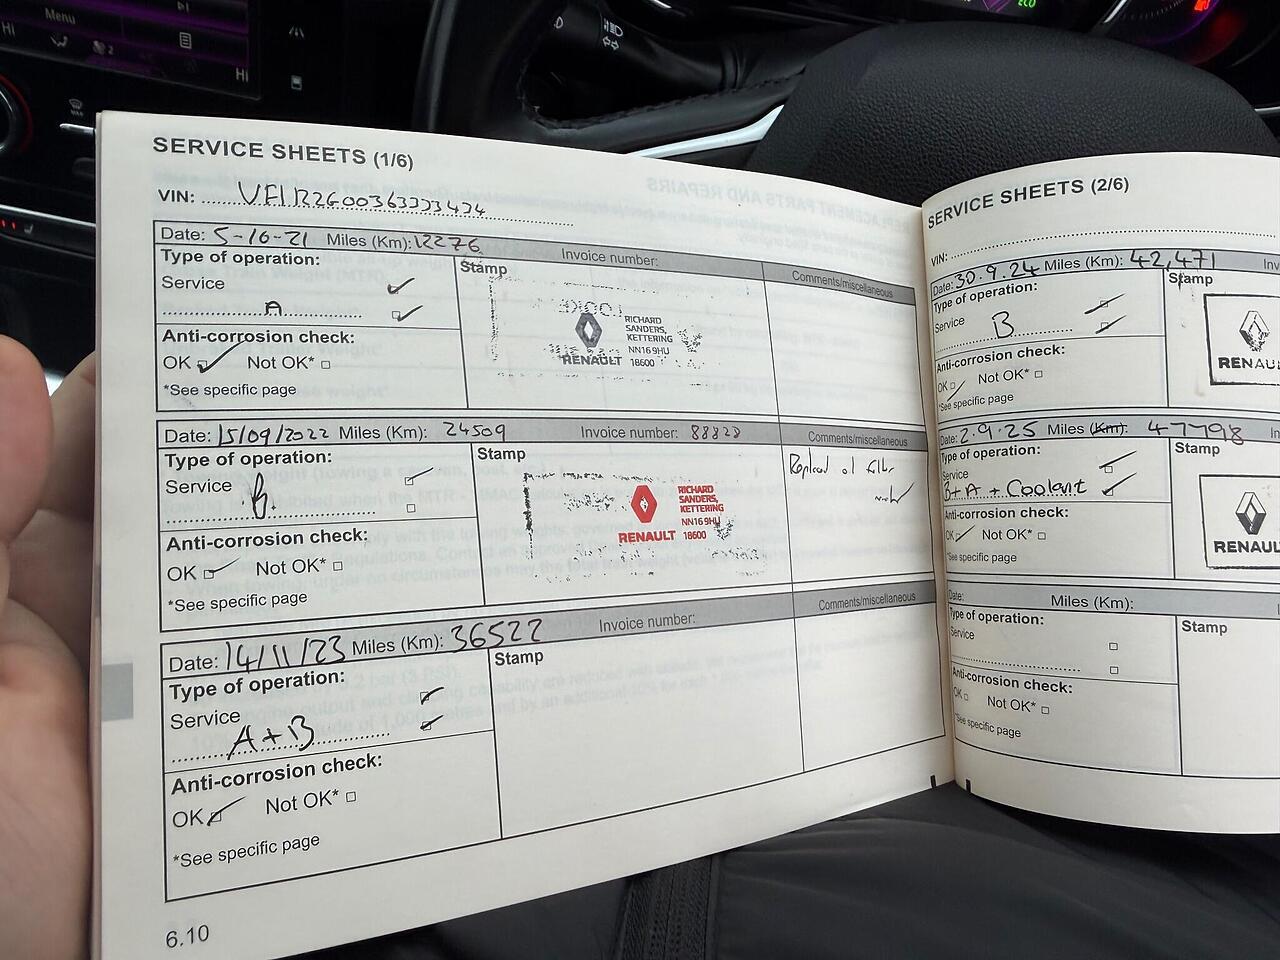 Menu
Hi
Hi
ECO
SERVICE SHEETS (1/6)
Date: 5-10-21 Miles (Km): 12276 Invoice number:
Type of operation:
Service
A
Stamp
Comments/miscellaneous
RICHARD
SANDERS,
KETTERING
NN16 9HU
RENAULT 18600
Anti-corrosion check:
OK Not OK*
*See specific page
Date: 15/09/2022 Miles (Km): 24509 Invoice number:
Type of operation:
Service
B.
Stamp
Comments/miscellaneous
RICHARD
SANDERS,
KETTERING
NN16 9HU
RENAULT 18600
Anti-corrosion check:
OK Not OK*
*See specific page
Date: 14/11/23 Miles (Km): 36522 Invoice number:
Type of operation:
Service
A+B
Stamp
Comments/miscellaneous
Anti-corrosion check:
OK Not OK*
*See specific page
6.10
SERVICE SHEETS (2/6)
VIN:
Date: 30.9.24 Miles (Km): 42,471
Type of operation:
Service
B
Stamp
RENAU
Anti-corrosion check:
OK Not OK*
*See specific page
Date: 2.9.25 Miles (Km): 47798
Type of operation:
Service
B+A + Coolant
Stamp
RENAUL
Anti-corrosion check:
OK Not OK*
*See specific page
Date: Miles (Km):
Type of operation:
Service
Stamp
Anti-corrosion check:
OK Not OK*
*See specific page